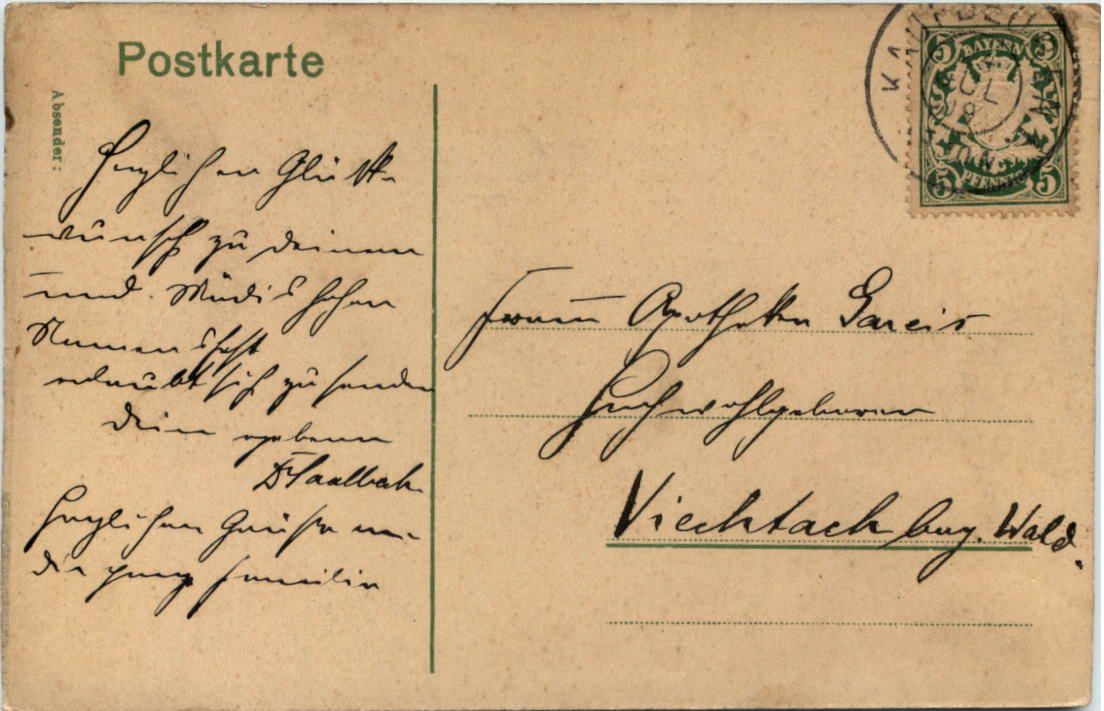 Postkarte
Absender:
Herzlichen Glück-
wunsch zu deinem
und
Namensfest
erlaubt sich zu senden
Dein ergebener
Saalbach
Herzlichen Grüße an
die ganze Familie
KAUFBEUREN
BAYERN
5 5
5 PFENNIG 5
Frau Apotheker Gareis
Hochwohlgeboren
Viechtach bay. Wald.